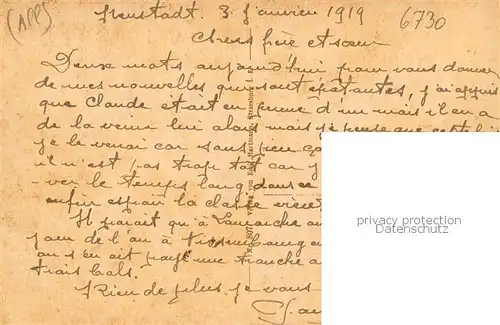 (APPS)
Neustadt. 3 Janvier 1919
6730
Chers frère et sœur
Deux mots aujourd'hui pour vous donner
de mes nouvelles qui sont épatantes, j'ai appris
que Claude était en perme d'un mois il en a
de la veine lui alors mais je pense que
je le verrai car sans
il n'est pas trop tôt car
ver le temps long dans ce
enfin espoir la classe vient
Il parait qu'à Lamarche
jour de l'an à Wissembourg
on s'en ait payé une tranche
trois bals.
Rien de plus je vous
privacy protection
Datenschutz